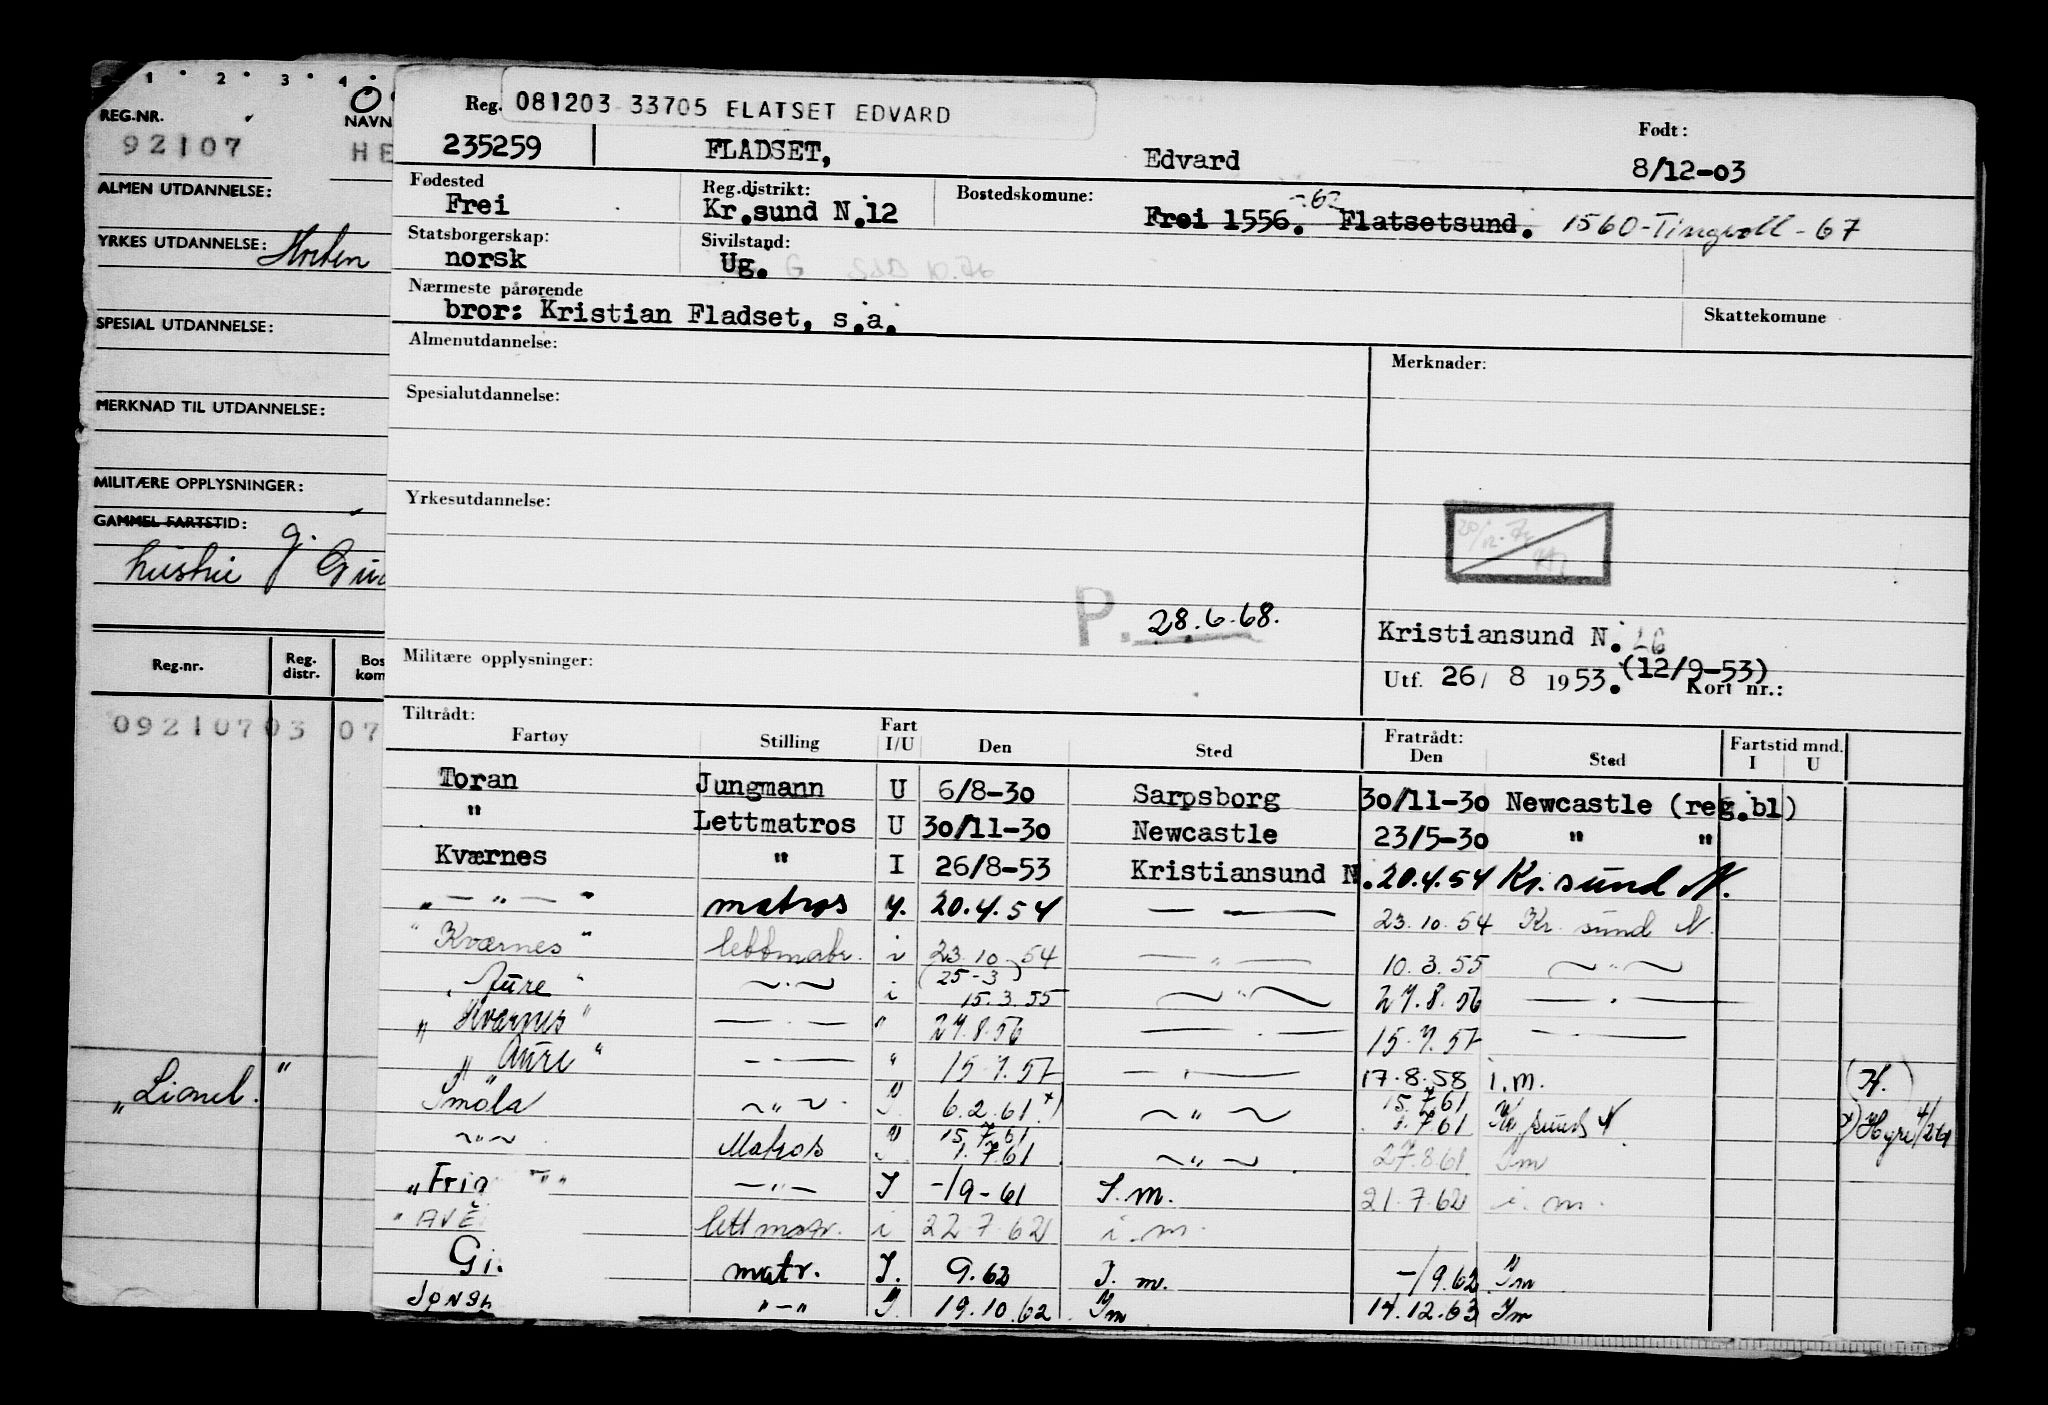 1 2 3 4
REG.NR. NAVN
92107 HE
ALMEN UTDANNELSE:
YRKES UTDANNELSE:
SPESIAL UTDANNELSE:
MERKNAD TIL UTDANNELSE:
MILITÆRE OPPLYSNINGER:
GAMMEL FARTSTID:
Reg.nr. Reg. distr. Bos kom
09210703 07
"Lionel."
Reg. 081203 33705 FLATSET EDVARD
Født:
235259 FLADSET, Edvard 8/12-03
Fødested Reg.distrikt: Bostedskommune:
Frei Kr.sund N.12 Frei 1556. -62 Flatsetsund. 1560-Tingvoll-67
Statsborgerskap: Sivilstand:
norsk Ug. G
Nærmeste pårørende
bror: Kristian Fladset, s.a. Skattekomune
Almenutdannelse: Merknader:
Spesialutdannelse:
Yrkesutdannelse:
P. 28.6.68.
Kristiansund N.
Militære opplysninger:
Utf. 26/ 8 1953.(12/9-53) Kort nr.:
Tiltrådt: Fratrådt: Fartstid mnd.
Fartøy Stilling Fart I/U Den Sted Den Sted I U
Toran Jungmann U 6/8-30 Sarpsborg 30/11-30 Newcastle (reg.bl)
" Lettmatros U 30/11-30 Newcastle 23/5-30 " "
Kværnes " I 26/8-53 Kristiansund N. 20.4.54 Kr.sund N.
" — " — " matros 20.4.54 — — 23.10.54 Kr. sund N.
"Kværnes" lettmatr. i 23.10 54 — " — 10.3.55 ~ " ~
(25-3)
"Aure" ~ " ~ i 15.3.55 ~ " ~ 27.8.56 — " —
"Kværnes" — " — " 27.8.56 — " — 15.7.57 — " —
"Aure" — " — " 15.7.57 — " — 17.8.58 i.m. (H.)
Smøla ~ " ~ I. 6.2.61 x) ~ " ~ 15.7.61 Kr.sund N
1.7.61
~ " ~ Matros I 15.7.61 ~ " ~ 27.8.61 Im
1.7.61
"Fri — " — I -/9-61 I.m. 21.7.62 i.m.
"AVE lettmatr. i 22.7.62 i.m.
Gi. matr. I. 9.62 I.m. -/9.62 Im
JONSH " — " I. 19.10.62 Im 17.12.63 Im